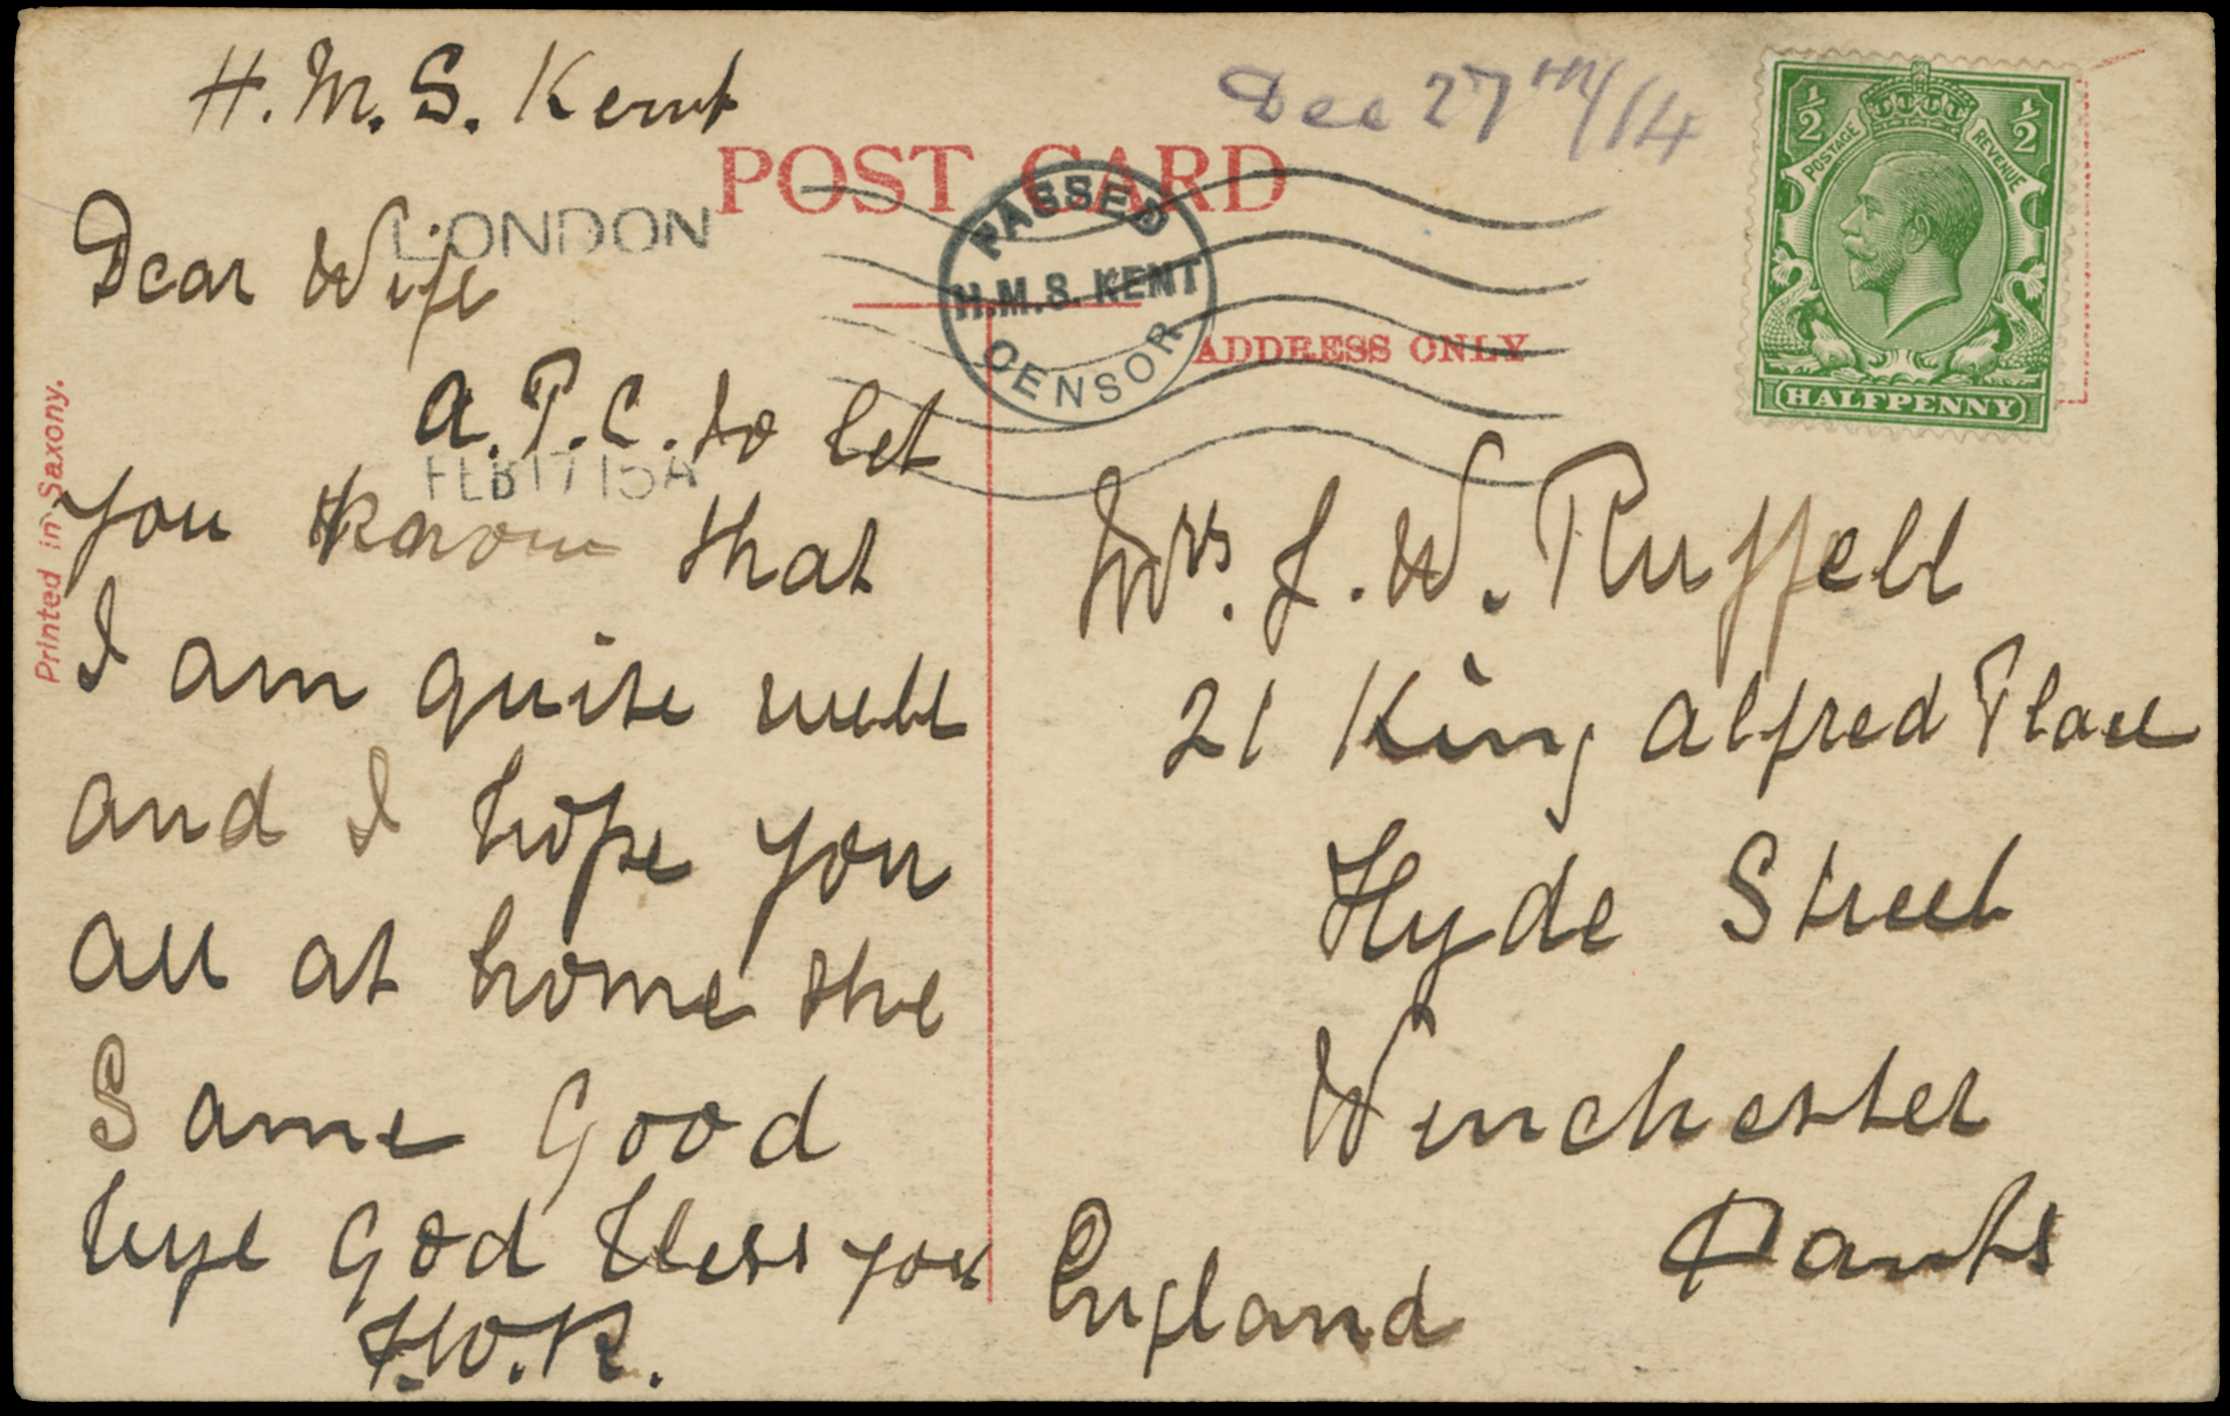 H.M.S. Kent
Dec 27th/14
POST CARD
PASSED
H.M.S. KENT
CENSOR
LONDON
FEB 17 15 A
ADDRESS ONLY
1/2 1/2
POSTAGE REVENUE
HALFPENNY
Printed in Saxony.
Dear Wife
a.P.C. to let
you know that
I am quite well
and I hope you
all at home the
Same Good
bye God bless you
J.W.R.
Mrs. J. W. Ruffell
21 King Alfred Place
Hyde Street
Winchester
Hants
England